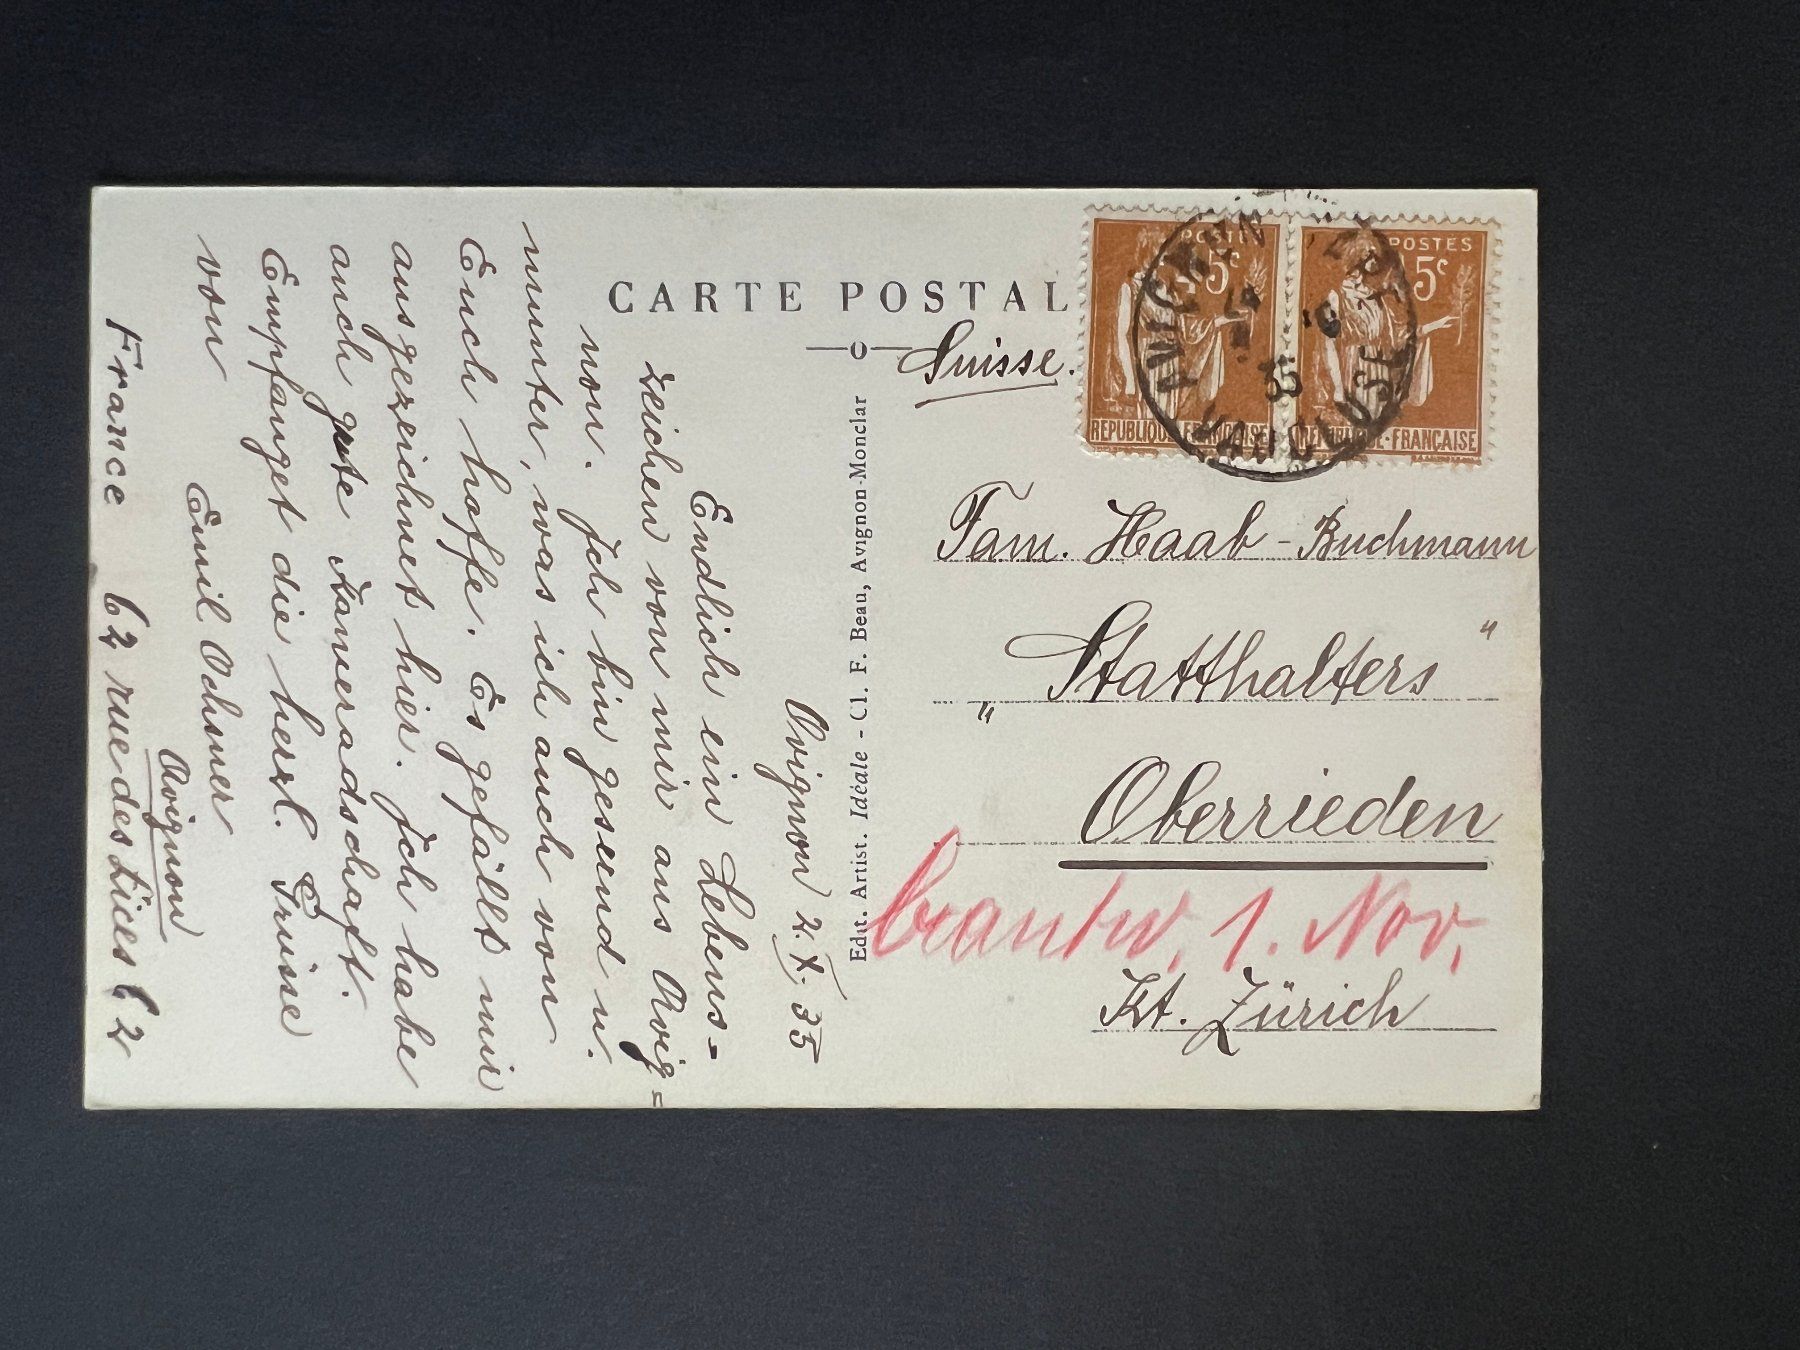 CARTE POSTAL
Suisse.
POSTES
5c
RÉPUBLIQUE FRANÇAISE
POSTES
5c
RÉPUBLIQUE-FRANÇAISE
AVIGNON
35
VAUCLUSE
Fam. Haab-Buchmann
"Statthalters"
Oberrieden
beantw. 1. Nov.
Kt. Zürich
Edit. Artist. Idéale - Cl. F. Beau, Avignon-Monclar
Avignon 2.X.35
Endlich ein Lebens-
zeichen von mir aus Avig=
non. Ich bin gesund u.
munter, was ich auch von
Euch hoffe. Es gefällt mir
ausgezeichnet hier. Ich habe
auch gute Kameradschaft.
Empfanget die herzl. Grüsse
von Emil Ochsner
Avignon
France 62 rue des Lices 62